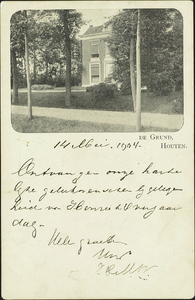 DE GRUND,
HOUTEN.
14 Mei. 1904.
Ontvangen onze harte
lijke gelukwenschen bij gelegen
heid van verjaar
dag.
Vele groeten